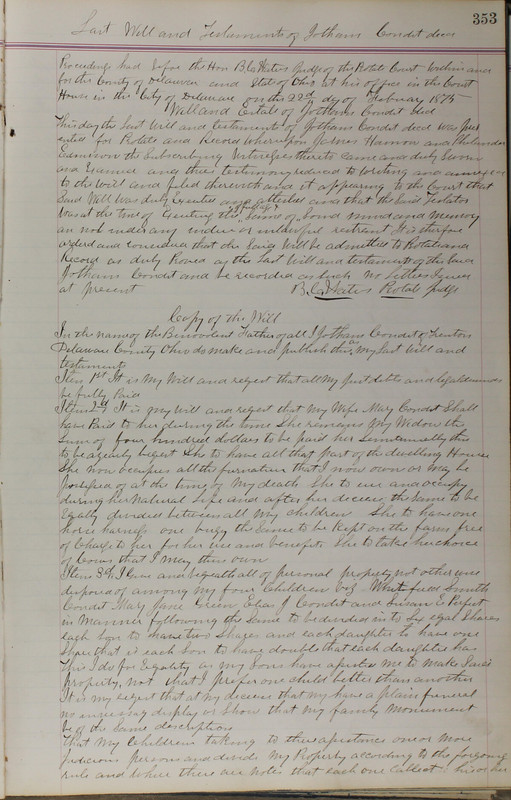 353
Last Will and Testament of Jotham Condit decd
Proceedings had before the Hon B.C. Waters Judge of the Probate Court within and
for the County of Delaware and State of Ohio at his office in the Court
House in the City of Delaware on the 22nd day of February 1875
Will and Estate of Jotham Condit decd
This day the Last Will and testament of Jotham Condit decd was
for Probate and Record whereupon James Hannon and
the Subscribing Witnesses thereto came and duly Sworn
and Examined and their testimony reduced to Writing and annexed
to the Will and filed therewith and it appearing to the Court that
Said Will was duly Executed and attested and that the Said Testator
was at the time of Executing the Same of Sound mind and Memory
an not under any undue or unlawful restraint It is therfore
orderd and considerd that the Said Will be admitted to Probate and
Record as duly Proved as the Last Will and testament of the Said
Jotham Condit and be recorded as Such no Letters Issued
at present B.C. Waters Probate Judge
Copy of the Will
In the name of the Benevolent Father of all I Jotham Condit of Trenton
Delaware County Ohio do make and publish this as my Last Will and
testament
Item 1st It is My Will and request that all My just debts and
be fully Paid
Item 2d It is my Will and request that My Wife Mary Condit Shall
have Paid to her during the time She remains My Widow the
Sum of four hundred dollars to be paid her Semianually this
to be a yearly beqest She to have all that part of the dwelling House
She now occupies all the furnature that I now own or May be
Possessed of at the time of My death She to use and occupy
during her Natural Life and after her decease the Same to be
Eqally divided between all My children She to have one
horse harness one bugy the Same to be Kept on the farm free
of Charge to her for her use and benefit She to take her choice
of Cows that I May then own
Item 3d I Give and beqeath all of personal property not otherwise
disposed of among my four Children viz Whitfield Smith
Condit Mary Jane Green Elias J Condit and Susan E Perfect
in Manner following the Same to be divided in to Six eqal Shares
each Son to have two Shares and each daughter to have one
Share that is each Son to have double that each daughter has
This I do for Eqality as my Sons have assisted me to Make Said
property, not that I prefer one child better than another
It is my reqest that at My decease that My have a plain funeral
no imposing display or Show that my family Monument
be of the Same description
That My Childrens taking to their assistance one or More
Judicious persons and divide My Property according to the forgoing
rule and where there are Notes that each one Collect his or her